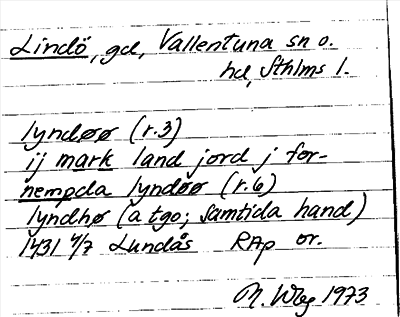 Lindö, gd, Vallentuna sn o.
hd, Sthlms l.
lyndøø (r.3)
ij mark land jord j for-
nempda lyndøø (r.6)
lyndhø (a tgo; samtida hand)
1431 4/7 Lundås RAp or.
M. Wbg 1973